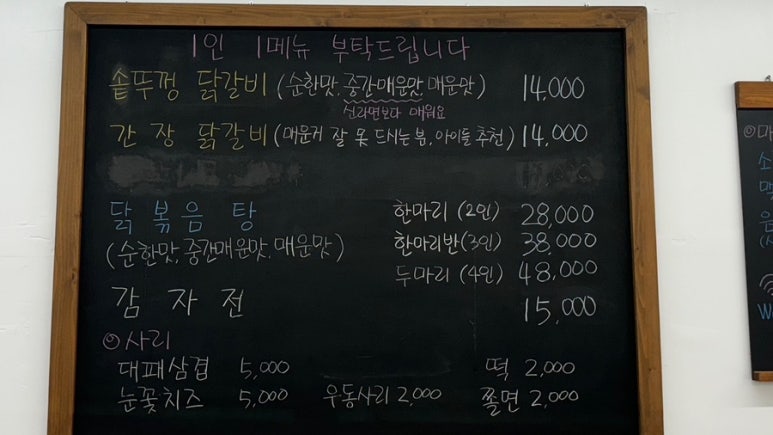 1인 1메뉴 부탁드립니다
솥뚜껑 닭갈비 (순한맛, 중간매운맛, 매운맛) 14,000
신라면보다 매워요
간장 닭갈비 (매운거 잘 못 드시는 분, 아이들 추천) 14,000
닭볶음탕 한마리 (2인) 28,000
(순한맛, 중간매운맛, 매운맛) 한마리반(3인) 38,000
두마리 (4인) 48,000
감자전 15,000
◎사리
대패삼겹 5,000 떡 2,000
눈꽃치즈 5,000 우동사리 2,000 쫄면 2,000
◎메
소
맥
음